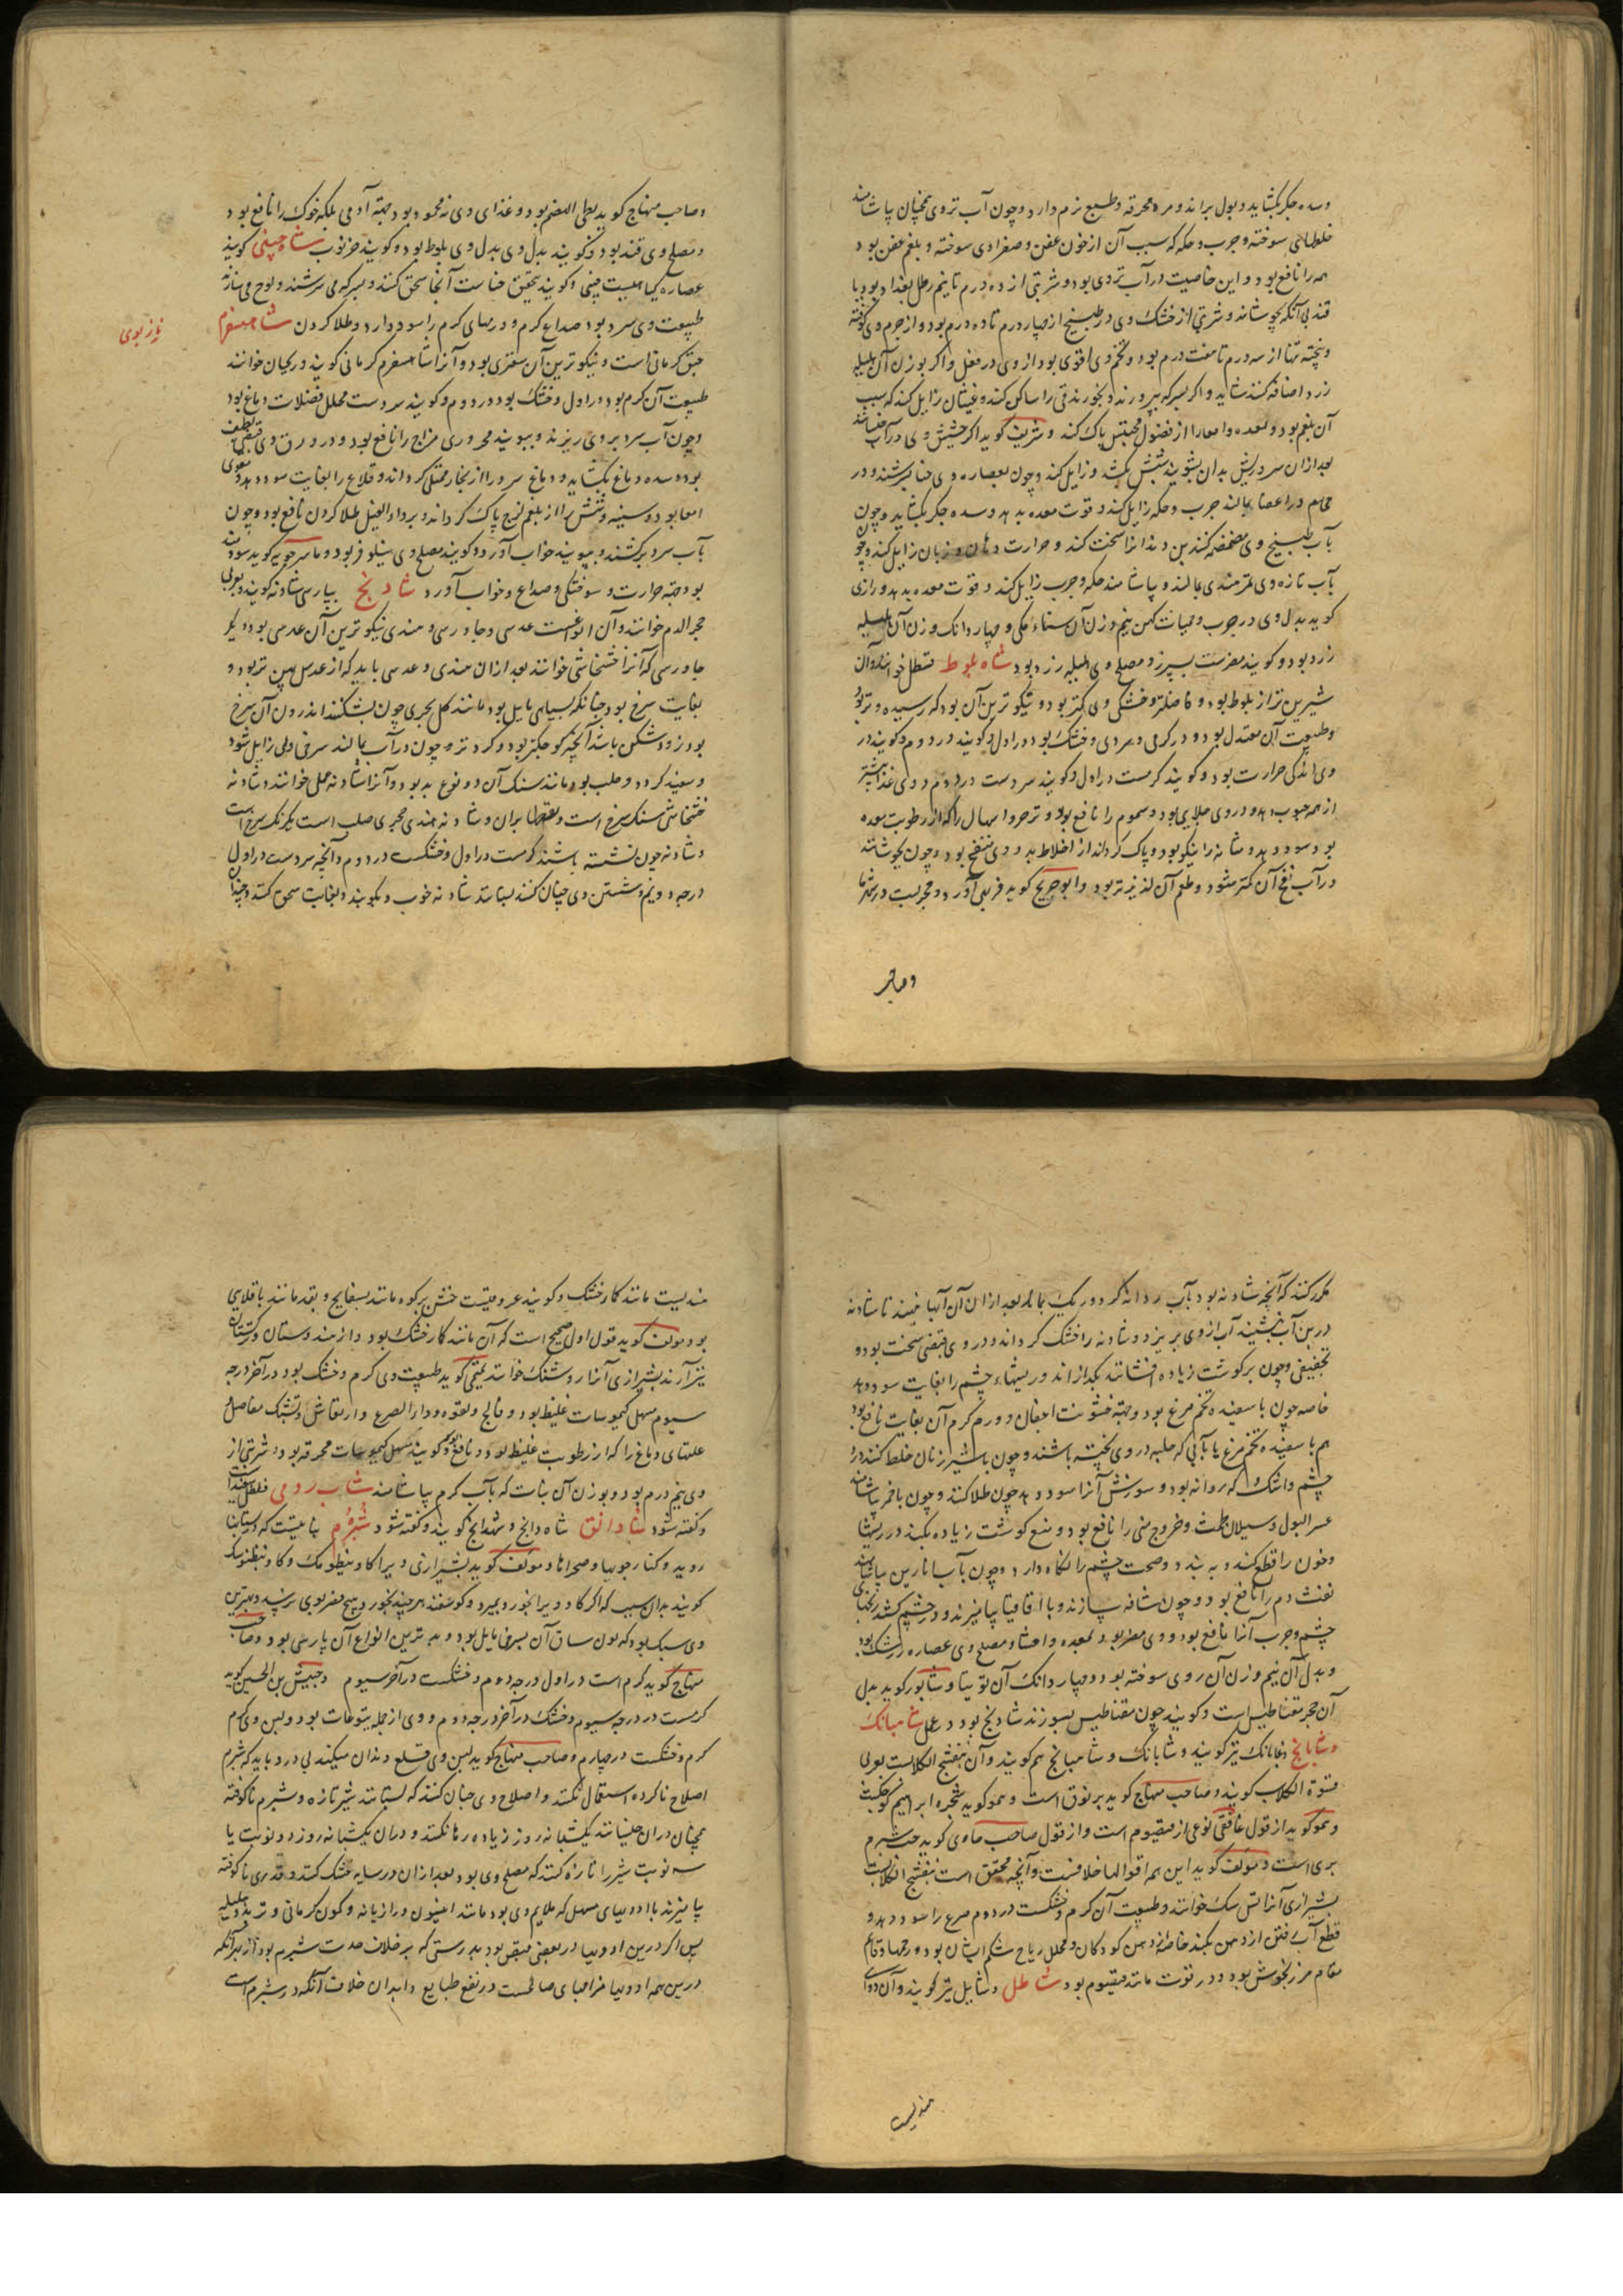 وسده جگر بگشاید و بول براند و مره محرقه و طبع نرم دارد و چون آب تر وی همچنان بیاشامند
خلطهای سوخته و جرب و حکه که سبب آن از خون عفن و صفرای سوخته و بلغم عفن بود
همه را نافع بود و این خاصیت در آب تر وی بود و شربتی از ده درم تا نیم رطل بغداد بود با
قند بی آنکه بجوشانند و شربتی از خشک وی در طبیخ از چهار درم تا ده درم بود و از جرم وی کوفته
و پخته تنها از سه درم تا هفت درم بود و تخم وی اقوی بود از وی در فعل و اگر بوزن آن هلیله
زرد اضافه کنند شاید و اگر بسرکه بپرورند و بخورند قی را ساکن کند و غثیان زایل کند که سبب
آن بلغم بود و معده و امعا را از فضول محتبس پاک کند و شریف گوید اگر حشیش وی در آب
بعد از آن سر و ریش بدان بشویند شپش بکشد و زایل کند و چون بعصاره وی حنا بسرشند و در
حمام در اعضا بمالند جرب و حکه زایل کند و قوت معده بدهد و سده جگر بگشاید و چون
بآب طبیخ وی مضمضه کنند بن دندانرا سخت کند و حرارت دهان و زبان زایل کند و چون
بآب تازه وی تمر هندی بمالند و بیاشامند حکه و جرب زایل کند و قوت معده بدهد و رازی
گوید بدل وی در جرب و حمیات کهن نیم وزن آن سناء مکی و چهار دانک وزن آن هلیله
زرد بود و گویند مضرست بسپرز و مصلح وی هلیله زرد بود شاه بلوط قسطل خوانند و آن
شیرین تر از بلوط بود و فاضلتر و خشکی وی کمتر بود و نیکوترین آن بود که رسیده و تر بود
و طبیعت آن معتدل بود و در گرمی و سردی و خشک بود در اول و گویند در دوم و گویند در
وی اندکی حرارت بود و گویند گرمست در اول و گویند سردست در دوم و وی غذا بیشتر
از همه حبوب دهد و در وی جلایی بود و سموم را نافع بود و تر حروا سهال را که از رطوبت معده
بود سود دهد و مثانه را نیکو بود و پاک گرداند از اخلاط بد و وی منفخ بود و چون بجوشانند
در آب نفخ آن کمتر شود و طعم آن لذیذتر بود و ابو جریج گوید فربهی آورد و مجربست در
و صاحب
و صاحب منهاج گوید بطی الهضم بود و غذای وی نه محمود بود جهت آدمی بلکه خوک را نافع بود
و مصلح وی قند بود و گویند بدل وی بدل وی بلوط بود و گویند خرنوب شاه چینی گویند
عصاره گیاهیست چینی و گویند بتحقیق حناست آنجا سحق کنند و بسرکه می سرشند و لوح می سازند
طبیعت وی سرد بود صداع گرم و ورمهای گرم را سود دارد و طلا کردن شاهسفرم
نازبوی
حبق کرمانی است و نیکوترین آن سعتری بود و آنرا شاهسفرم کرمانی گویند و ریحان خوانند
طبیعت آن گرم بود در اول و خشک بود در دوم و گویند سردست محلل فضلات دماغ بود
و چون آب سرد بر وی ریزند و ببویند محروری مزاج را نافع بود و در ورق وی قبضی لطیف
بود و سده دماغ بگشاید و دماغ سرد را از بخار ممتلی گرداند و قلاع را بغایت سود دهد و مقوی
امعا بود و سینه و شش را از بلغم لزج پاک گرداند و بر داء الفیل طلا کردن نافع بود و چون
بآب سرد برکشند و ببویند خواب آورد و گویند مصلح وی نیلوفر بود و ماسرجویه گوید سودمند
بود جهت حرارت و سوختگی و صداع و خواب آورد شادنج بپارسی شادنه گویند و بعربی
حجر الدم خوانند و آن انواعست عدسی و جاورسی و هندی نیکوترین آن عدسی بود و دیگر
جاورسی که آنرا خشخاشی خوانند بعد از آن هندی و عدسی باید که از عدس پهن تر بود و
بغایت سرخ بود چنانکه بسیاهی مایل بود مانند گل بحری چون بشکنند اندرون آن سرخ
بود و زودشکن باشد آنچه کوچکتر بود و گردتر و چون در آب بمالند سرخی وی زایل شود
و سفید گردد و صلب بود مانند سنگ آن دو نوع بد بود و آنرا شادنه جبلی خوانند و شادنه
خشخاشی سنگ سرخ است و نقطها بران و شادنه هندی حجری صلب است یکرنک سرخ است
و شادنه چون نشسته باشند گرمست در اول و خشکست در دوم و آنچه سردست در اول
درجه دویم و شستن وی چنان کنند بستانند شادنه خوب و بکوبند و بغایت سحق کنند و چندان
مکرر کنند که آنچه شادنه بود بآب روانه گردد و ریک بماند بعد از آن آن آبها ننهند تا شادنه
در بن آب نشیند آب از وی بریزد و شادنه را خشک گرداند و در وی قبضی سخت بود و
تجفیفی و چون بر گوشت زیاده افشانند بگدازاند و ریشهاء چشم را بغایت سود دهد
خاصه چون با سفیده تخم مرغ بود و جهت خشونت اجفان و ورم گرم آن بغایت نافع بود
هم با سفیده تخم مرغ یا بآبی که حلبه در وی پخته باشند و چون با شیر زنان خلط کنند درد
چشم و اشک که روانه بود و سوزش آنرا سود دهد چون طلا کنند و چون با خمر بیاشامند
عسر البول و سیلان طمث و خروج منی را نافع بود و منع گوشت زیاده بکند در ریشها
و خون را قطع کند و به بندد و صحت چشم را نگاه دارد و چون بآب انارین بیاشامند
نفث دم را نافع بود و چون شافه سازند و با اقاقیا بیامیزند و در چشم کشند
چشم و جرب آنرا نافع بود و وی مضر بود بمعده و احشا و مصلح وی عصاره زرشک بود
و بدل آن نیم وزن آن روی سوخته بود و چهار دانک آن توتیا و شاپور گوید بدل
آن حجر مقناطیس است و گویند چون مقناطیس بسوزند شادنج بود در عمل شاهبانک
و شابانج و شابانک نیز گویند و شابانک و شاهبانج هم گویند و آن بنفشج الکلابست بعربی
فسوة الکلاب گویند و صاحب منهاج گوید برنوق است و هم او گوید شجره ابراهیم کوچکست
و هم او گوید از قول غافقی نوعی از قیصوم است و از قول صاحب حاوی گوید حب شبرم
بری است و مؤلف گوید این همه اقوالها خلافست و آنچه محقق است بنفشج الکلابست
بشیرازی آنرا تس سک خوانند و طبیعت آن گرم و خشکست در دوم صرع را سود دهد و
قطع آب رفتن از دهن بکند خاصه از دهن کودکان و محلل ریاح شکم ایشان بود و رحمها و قایم
مقام مرزنجوش بود و در قوت مانند قیصوم بود شاطل و شایل نیز گویند و آن دوای
هندیست
هندیست مانند کماء خشک و گویند عروقیست خشن بر کوه مانند بسفایج و بقدر مانند باقلایی
بود مولف گوید قول اول صحیح است که آن مانند کماء خشک بود و از هندوستان و ترکستان
نیز آرند بشیرازی آنرا روشنک خوانند تمیمی گوید طبیعت وی گرم و خشک بود در آخر درجه
سیوم مسهل کیموسات غلیظ بود و فالج و لقوه و داء الصرع و ارتعاش و تشبک مفاصل و
علتهای دماغ را که از رطوبت غلیظ بود نافع بود و گویند مسهل کیموسات محرقه بود و شربتی از
وی نیم درم بود و بوزن آن نبات که بآب گرم بیاشامند شاب رومی فلفل سفید است
و گفته شود شادانق شاه دانج و شهدانج گویند و گفته شود شبرم نباتیست که در بستانها
روید و کنار جویها و صحراها و مؤلف گوید بشیرازی ویرا گاو
گویند بدان سبب که اگر گاو ویرا بخورد بمیرد و گوسفند هر چند بخورد هیچ مضر بوی نرسد و بهترین
وی سبک بود که لون ساق آن بسرخی مایل بود و بدترین انواع آن پارسی بود و صاحب
منهاج گوید گرم است در اول درجه دوم و خشکست در آخر سیوم و حبیش بن الحسن گوید
گرمست در درجه سیوم و خشک در آخر درجه دوم و وی از جمله یتوعات بود و لبن وی گرم
گرم و خشکست در چهارم و صاحب منهاج گوید لبن وی قلع دندان میکند بی درد باید که شبرم
اصلاح ناکرده استعمال نکنند و اصلاح وی چنان کنند که بستانند شیر تازه و شبرم ناکوفته
همچنان در آن خیسانند یکشبانه روز زیاده رها نکنند و در آن یکشبانه روز دو نوبت یا
سه نوبت شیر را تازه کنند که مصلح وی بود بعد از آن در سایه خشک کنند و قدری ناکوفته
بیامیزند با ادویهای مسهل که ملایم وی بود مانند انیسون و رازیانه و کمون کرمانی و تربد و هلیله
پس اگر درین ادویها در بعضی قبض بود بدرستی که بر خلاف حدت شبرم بود از بهر آنکه
درین همه ادویها مزاجهای صالحست در نفع طبایع و ابدان خلاف آنکه در شبرم است